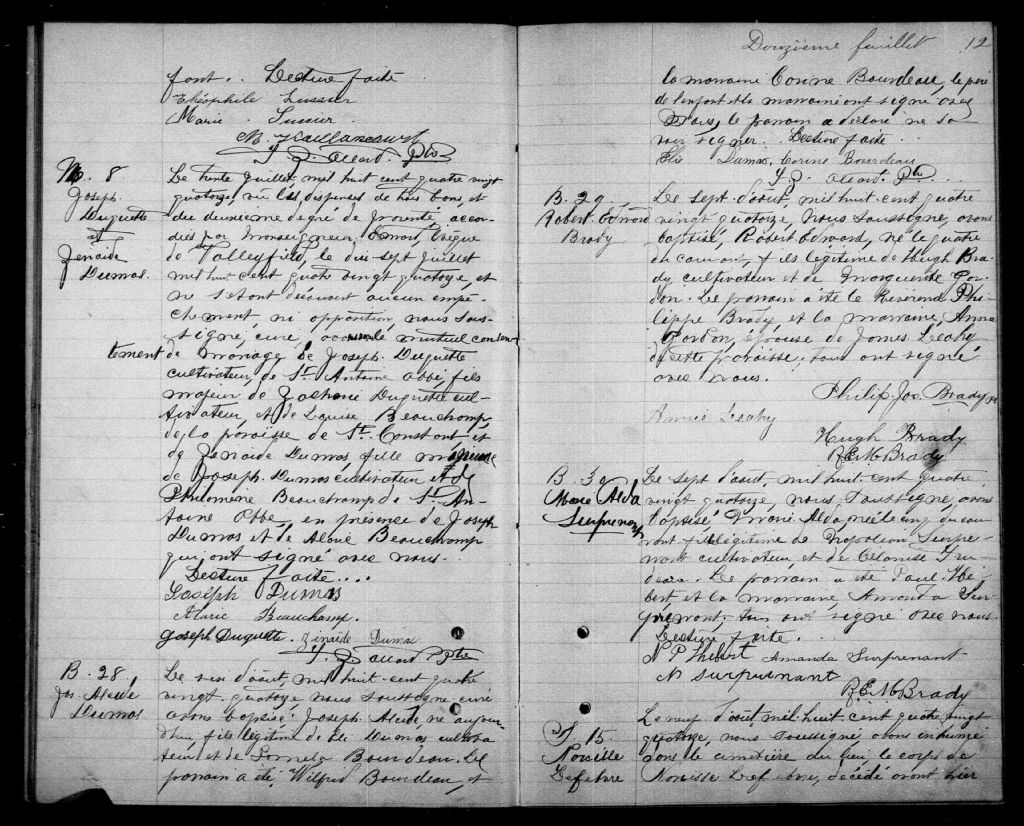 font. Lecture faite
Théophile Lussier
Marie Lussier
M. Vaillancourt
J. J. Allard Ptre
M. 8
Joseph
Duguette
et
Zénaide
Dumas.
Le trente juillet, mil huit cent quatre vingt
quatorze, vu les dispenses de trois bans, et
du deuxième degré de parenté accor-
dées par Monseigneur Emard, Evêque
de Valleyfield, le dix-sept juillet
mil huit cent quatre vingt quatorze, et
ne s'étant découvert aucun empê-
chement, ni opposition, nous sous-
signé, curé, avons le mutuel consen-
tement de mariage de Joseph Duguette
cultivateur, de St. Antoine Abbé, fils
majeur de Zacharie Duguette cul-
tivateur, et de Louise Beauchamp
de la paroisse de St. Constant, et
de Zénaide Dumas, fille mineure
de Joseph Dumas cultivateur et de
Philomène Beauchamp de St. An-
toine Abbé, en présence de Joseph
Dumas et de Beauchamp
qui ont signé avec nous.
Lecture faite....
Joseph Dumas
Beauchamp
Joseph Duguette. Zénaide Dumas
J. J. Allard Ptre
B. 28,
Jos. Alcide
Dumas
Le six d'août, mil huit-cent quatre
vingt quatorze, nous soussigné curé
avons baptisé Joseph Alcide, né aujour-
d'hui, fils légitime de Elie Dumas cultiva-
teur, et de Bourdeau. Le
parrain a été Wilfrid Bourdeau, et
Douzième feuillet 12
la marraine Corine Bourdeau, le père
de l'enfant et la marraine ont signé avec
nous, le parrain a déclaré ne sa-
voir signer. Lecture faite.
Elie Dumas, Corine Bourdeau
J. J. Allard. Ptre
B. 29.
Robert Edward
Brady
Le sept d'août, mil huit-cent quatre
vingt quatorze, nous soussigné, avons
baptisé, Robert Edward, né le quatre
du courant, fils légitime de Hugh Bra-
dy cultivateur et de Marguerite Gor-
don. Le parrain a été le Révérend Phi-
lippe Brady, et la marraine, Anna
Gordon, épouse de James Leahy
de cette paroisse; tous ont signé
avec nous.
Philip. Jos. Brady
Annie Leahy
Hugh Brady
R.E.M. Brady
B. 30
Marie Alda
Surprenant
Le sept d'août, mil huit cent quatre
vingt quatorze, nous, soussigné, avons
baptisé Marie Alda née le cinq du cou-
rant fille légitime de Napoléon Surpre-
nant cultivateur, et de Tru-
deau. Le parrain a été Paul Hé-
bert, et la marraine, Amanda Sur-
prenant, tous ont signé avec nous.
Lecture faite...
N P Hebert Amanda Surprenant
N Surprenant
R.E.M. Brady
S. 15
Lefebvre
Le neuf d'août mil huit cent quatre vingt
quatorze, nous soussigné avons inhumé
dans le cimetière du lieu, le corps de
Lefebvre, décédé avant hier